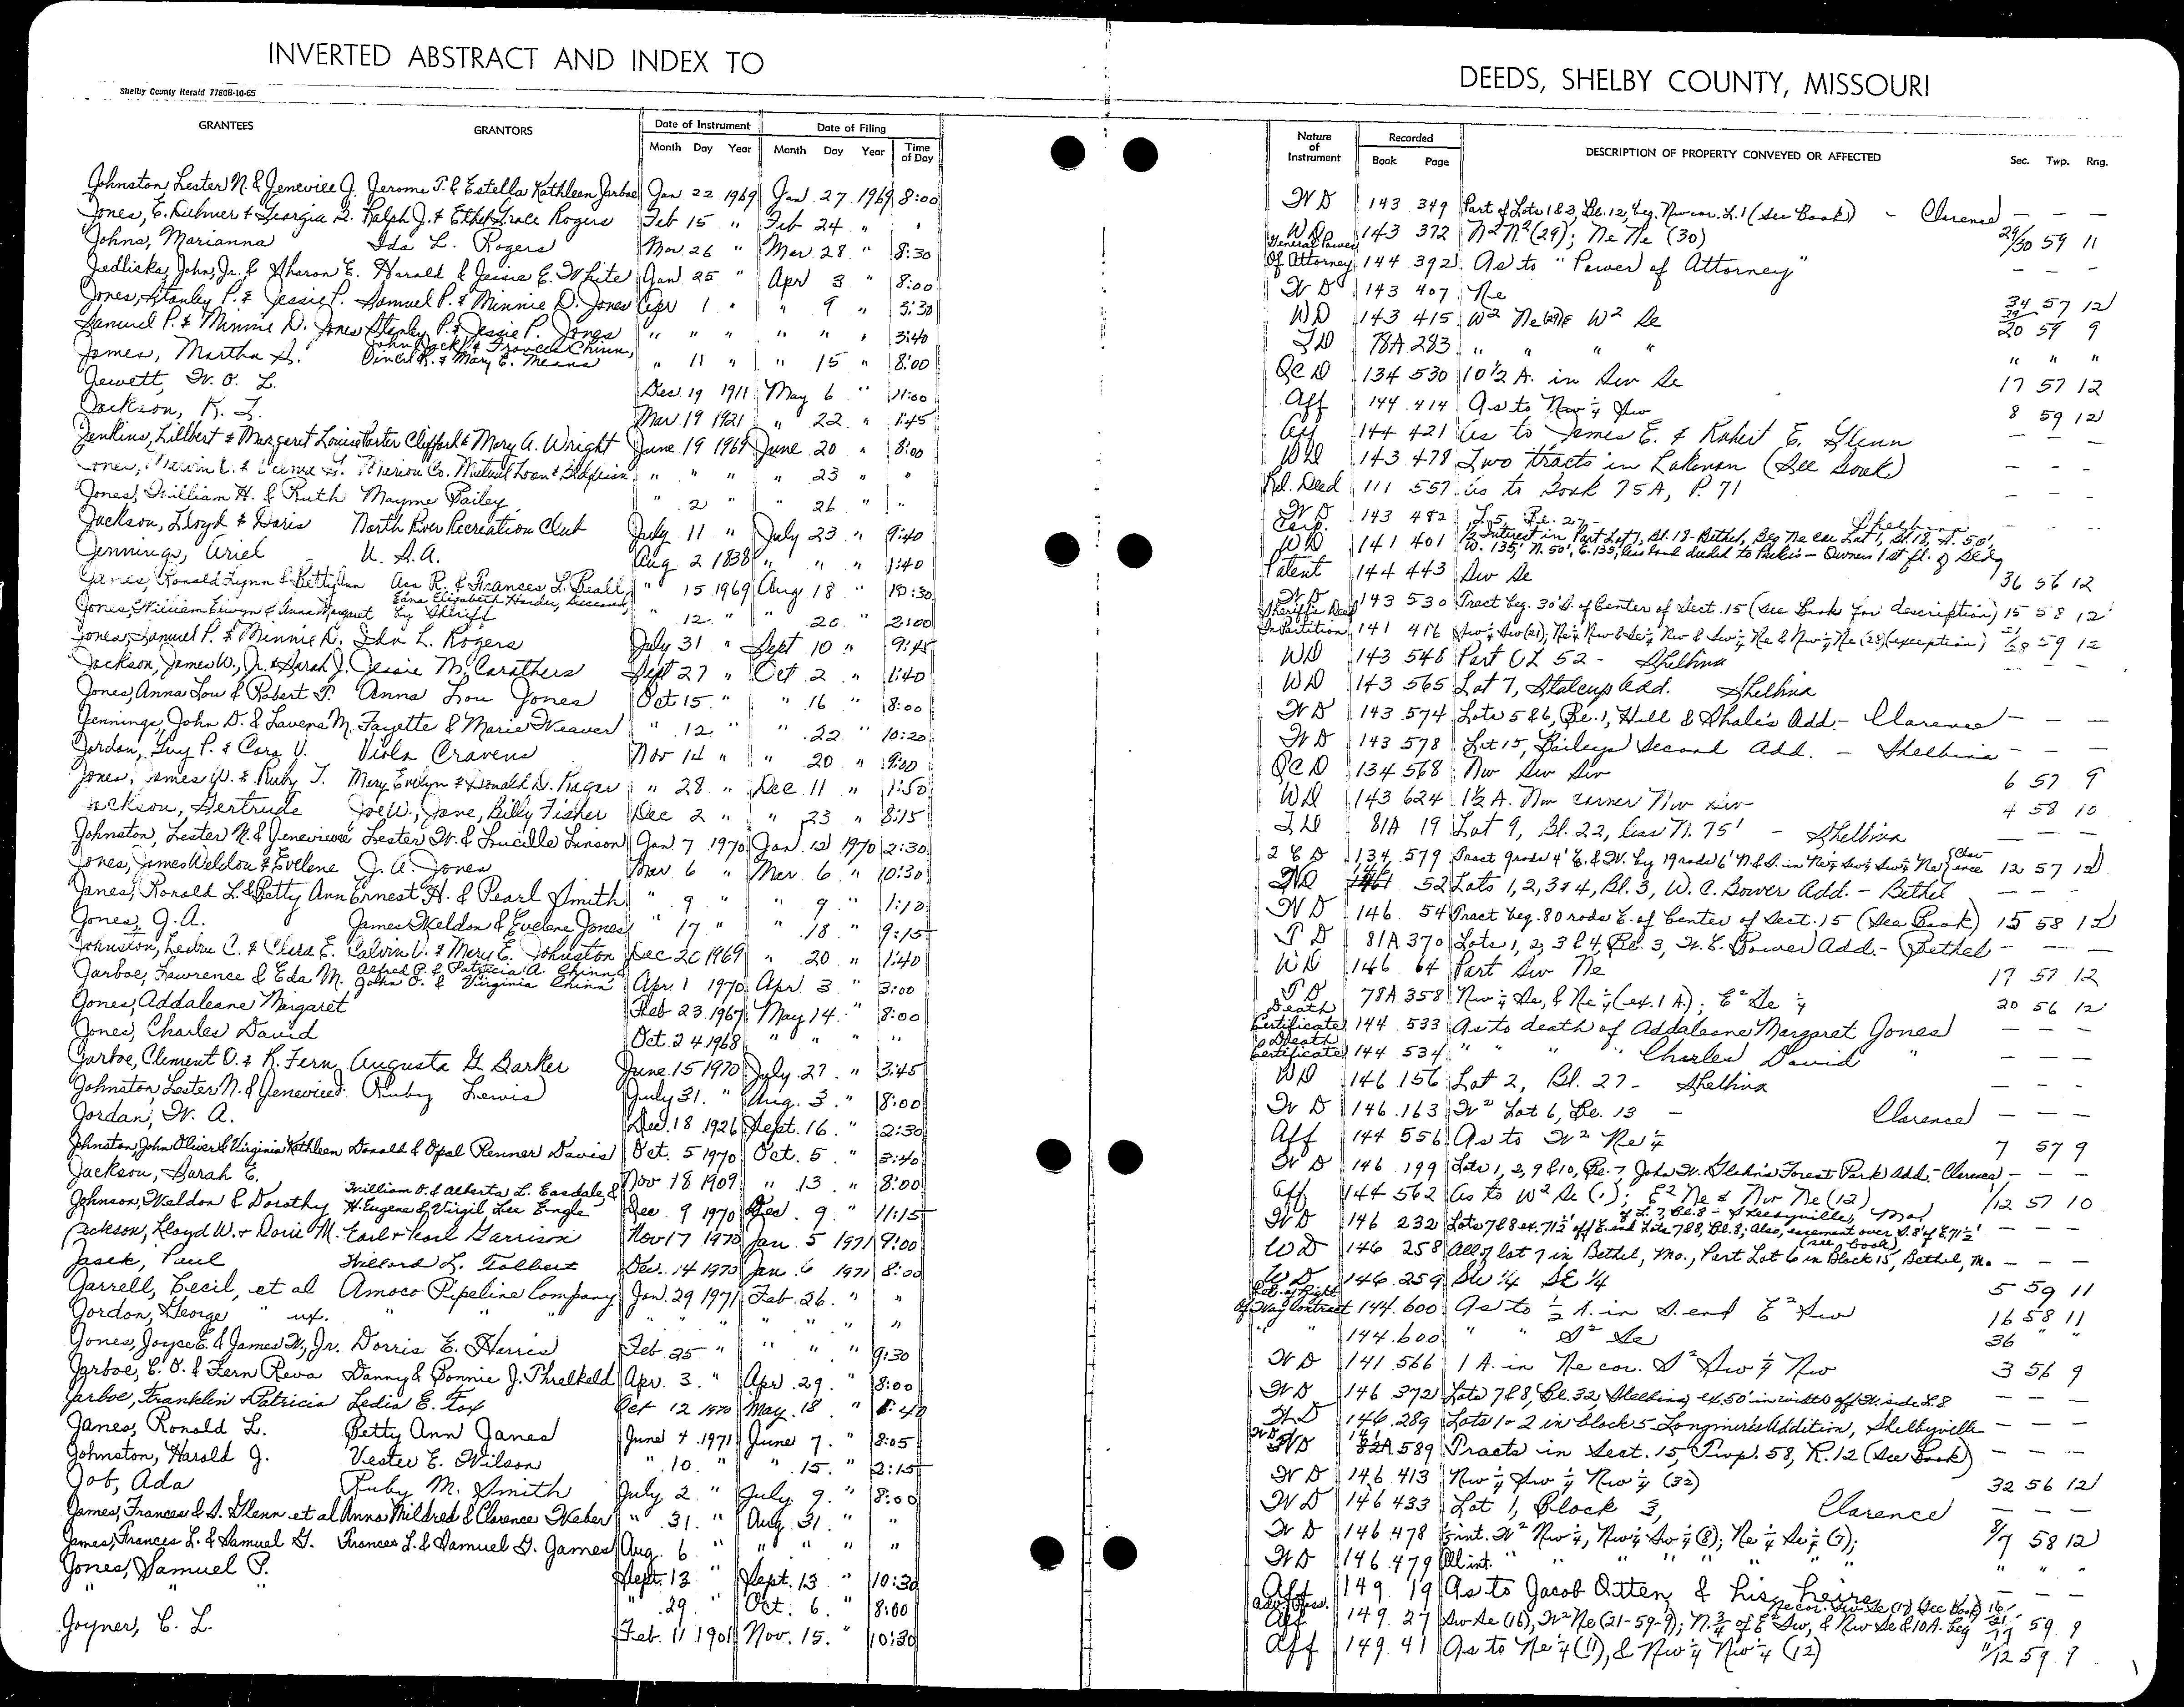 INVERTED ABSTRACT AND INDEX TO DEEDS, SHELBY COUNTY, MISSOURI
Shelby County Herald 7780B-10-65
GRANTEES GRANTORS Date of Instrument Date of Filing Nature of Instrument Recorded DESCRIPTION OF PROPERTY CONVEYED OR AFFECTED Sec. Twp. Rng.
Month Day Year Month Day Year Time of Day Book Page
Johnston, Lester N. & Jeneviee J. Jerome T. & Estella Kathleen Jarboe Jan 22 1969 Jan 27 1969 8:00 WD 143 349 Part of Lots 1&2, Bl. 12, beg. Nw cor. L. 1 (See Book) - Clarence — — —
Jones, E. Delmer & Georgia L. Ralph J. & Ethel Grace Rogers Feb 15 " Feb 24 " " WD 143 372 N² N² (29); Ne Ne (30) 29/30 59 11
Johns, Marianna Ida L. Rogers Mar 26 " Mar 28 " 8:30 General Power Of Attorney 144 392 As to "Power of Attorney" — — —
Jedlicka, John, Jr. & Sharon E. Harold & Jessie E. White Jan 25 " Apr 3 " 8:00 WD 143 407 Ne 34 57 12
Jones, Stanley P. & Jessie P. Samuel P. & Minnie D. Jones Apr 1 " " 9 " 3:30 WD 143 415 W² Ne (29) & W² Se 20 59 9
Samuel P. & Minnie D. Jones Stanley P. & Jessie P. Jones " " " " " " 3:40 TD 78A 283 " " " " " " "
James, Martha A. John Jack & Frances Chinn, Vincil R. & Mary E. Means " 11 " " 15 " 8:00 QCD 134 530 10½ A. in Sw Se 17 57 12
Jewett, W. O. L. Dec 19 1911 May 6 " 11:00 Aff 144 414 As to Nw ¼ Sw 8 59 12
Jackson, R. L. Mar 19 1921 " 22 " 1:45 Aff 144 421 As to James E. & Robert E. Glenn — — —
Jenkins, Lillbert & Margaret Louise Porter Clifford & Mary A. Wright June 19 1969 June 20 " 8:00 WD 143 478 Two tracts in Lakenan (See Book) — — —
Jones, Marion Co. Mutual Loan & Bldg " " " " 23 " " Rel. Deed 111 557 As to Book 75A, P. 71 — — —
Jones, William H. & Ruth Mayme Bailey " 2 " " 26 " " WD 143 482 L. 5, Bl. 27 Shelbina — — —
Jackson, Lloyd & Doris North River Recreation Club July 11 " July 23 " 9:40 Corp. WD 141 401 ½ Interest in Part Lot 7, Bl. 18-Bethel, Beg Ne cor Lot 1, Bl. 18, S. 50', W. 135', N. 50', E. 135, less land deeded to Parker - Owners 1st fl. of Bldg
Jennings, Ariel U. S. A. Aug 2 1838 " " " 1:40 Patent 144 443 Sw Se 36 56 12
Janes, Ronald Lynn & Betty Ann Asa R. & Frances L. Beall " 15 1969 Aug 18 " 10:30 WD 143 530 Tract beg. 30' S. of Center of Sect. 15 (See Book for description) 15 58 12
Jones, William Erwyn & Anna Margaret Edna Elizabeth Harder, Deceased, by Sheriff " 12 " " 20 " 2:00 Sheriff's Deed In Partition 141 416 Sw¼ Sw (21); Ne¼ Nw & Se¼ Nw & Sw¼ Ne & Nw¼ Ne (28) (exception) 21/28 59 12
Jones, Samuel P. & Minnie D. Ida L. Rogers July 31 " Sept 10 " 9:45 WD 143 548 Part OL 52 - Shelbina — —
Jackson, James W., Jr. & Sarah J. Jessie M. Carothers Sept 27 " Oct 2 " 1:40 WD 143 565 Lot 7, Stalcup Add. Shelbina
Jones, Anna Lou & Robert T. Anna Lou Jones Oct 15 " " 16 " 8:00 WD 143 574 Lots 5&6, Bl. 1, Hill & Shale's Add. - Clarence — — —
Jennings, John D. & Lavena M. Fayette & Marie Weaver " 12 " " 22 " 10:20 WD 143 578 Lot 15, Baileys Second Add. - Shelbina — — —
Jordan, Guy P. & Cora V. Viola Cravens Nov 14 " " 20 " 9:00 QCD 134 568 Nw Sw Sw 6 57 9
Jones, James W. & Ruby T. Mary Evelyn & Donald D. Rager " 28 " Dec 11 " 1:50 WD 143 624 1½ A. Nw corner Nw Sw 4 58 10
Jackson, Gertrude Joe W., Jane, Billy Fisher Dec 2 " " 23 " 8:15 TD 81A 19 Lot 9, Bl. 22, less N. 75' - Shelbina — — —
Johnston, Lester N. & Jenevieve Lester W. & Lucille Linson Jan 7 1970 Jan 12 1970 2:30 QCD 134 579 Tract 9 rods 4' E. & W. by 19 rods 6' N. & S. in Nw¼ Sw¼ Sw¼ Ne (Clarence 12 57 12
Jones, James Weldon & Evelene J. A. Jones Mar 6 " Mar 6 " 10:30 WD 146 52 Lots 1, 2, 3 & 4, Bl. 3, W. C. Bower Add. - Bethel — — —
Janes, Ronald L. & Betty Ann Ernest H. & Pearl Smith " 9 " " 9 " 1:10 WD 146 54 Tract beg. 80 rods E. of Center of Sect. 15 (See Book) 15 58 12
Jones, J. A. James Weldon & Evelene Jones " 17 " " 18 " 9:15 TD 81A 370 Lots 1, 2, 3 & 4, Bl. 3, W. C. Bower Add. - Bethel — — —
Johnston, Ledru C. & Clara E. Calvin V. & Mary E. Johnston Dec 20 1969 " 20 " 1:40 WD 146 64 Part Sw Ne 17 57 12
Jarboe, Lawrence & Eda M. Alfred P. & Patricia A. Chinn & John O. & Virginia Chinn Apr 1 1970 Apr 3 " 3:00 TD 78A 358 Nw¼ Se, & Ne¼ (ex. 1 A); E² Se ¼ 20 56 12
Jones, Addaleane Margaret Feb 23 1967 May 14 " 8:00 Death Certificate 144 533 As to death of Addaleane Margaret Jones — — —
Jones, Charles David Oct. 24 1968 " " " " Death Certificate 144 534 " " " " Charles David " — — —
Jarboe, Clement O. & R. Fern Augusta G. Barker June 15 1970 July 27 " 3:45 WD 146 156 Lot 2, Bl. 27 - Shelbina — — —
Johnston, Lester N. & Jenevieve Ruby Lewis July 31 " Aug. 3 " 8:00 WD 146 163 W² Lot 6, Bl. 13 - Clarence — — —
Jordan, W. A. Dec. 18 1926 Sept. 16 " 2:30 Aff 144 556 As to W² Ne¼ 7 57 9
Johnston, John Oliver & Virginia Kathleen Donald & Opal Renner Davis Oct. 5 1970 Oct. 5 " 3:40 WD 146 199 Lots 1, 2, 9 & 10, Bl. 7, John W. Glahn's Forest Park Add. - Clarence — — —
Jackson, Sarah E. Nov 18 1909 " 13 " 8:00 Aff 144 562 As to W² Se (1); E² Ne & Nw Ne (12) 1/12 57 10
Johnson, Weldon & Dorothy William O. & Alberta L. Easdale, & H. Eugene & Virgil Lee Engle Dec. 9 1970 Dec. 9 " 11:15 WD 146 232 Lots 7&8 ex. 71½' off E. end Lots 7&8, Bl. 8; Also, easement over S. 8' of E 71½' of L. 7, Bl. 8 - Shelbyville, Mo. (see book) — — —
Jackson, Lloyd W. & Doris M. Earl & Pearl Garrison Nov 17 1970 Jan 5 1971 9:00 WD 146 258 All of lot 7 in Bethel, Mo., Part Lot 6 in Block 15, Bethel, Mo — — —
Jasek, Paul Willard L. Tolbert Dec. 14 1970 Jan 6 1971 8:00 WD 146 259 SW ¼ SE ¼ 5 59 11
Jarrell, Cecil, et al Amoco Pipeline Company Jan. 29 1971 Feb. 26 " " Rel. of Right Of Way Contract 144 600 As to ½ A. in S. end E² Sw 16 58 11
Jordon, George " ux. " " " " " " " " " " " 144 600 " " S² Se 36 " "
Jones, Joyce E. & James W., Jr. Dorris E. Harris Feb. 25 " " " " 9:30 WD 141 566 1 A. in Ne cor. S² Sw ¼ Nw 3 56 9
Jarboe, C. O. & Fern Reva Danny & Bonnie J. Threlkeld Apr. 3 " Apr. 29 " 8:00 WD 146 372 Lots 7&8, Bl. 32, Shelbina, ex. 50' in width off W. side L. 8 — —
Jarboe, Franklin & Patricia Ledia E. Fox Oct 12 1970 May 18 " 8:40 WD 146 289 Lots 1-2 in block 5 Longmire's Addition, Shelbyville — — —
Janes, Ronald L. Betty Ann Janes June 4 1971 June 7 " 8:05 WD 141 589 Tracts in Sect. 15, Twp. 58, R. 12 (See Book) — — —
Johnston, Harold J. Vester E. Wilson " 10 " " 15 " 2:15 WD 146 413 Nw¼ Sw¼ Nw¼ (32) 32 56 12
Job, Ada Ruby M. Smith July 2 " July 9 " 8:00 WD 146 433 Lot 1, Block 3, Clarence — — —
James, Frances & S. Glenn et al Anna Mildred & Clarence Weber " 31 " Aug. 31 " " WD 146 478 ½ int. W² Nw¼, Nw¼ Sw¼ (8); Ne¼ Se¼ (7); 8/7 58 12
James, Frances L. & Samuel G. Frances L. & Samuel G. James Aug. 6 " " " " WD 146 479 All int. " " " " " " " "
Jones, Samuel P. Sept. 13 " Sept. 13 " 10:30 Aff 149 19 As to Jacob Otten & his heirs — — —
" " " " 29 " Oct. 6 " 8:00 Adv. Poss. Aff 149 27 Sw Se (16), W² Ne (21-59-9); N. ¾ of E² Sw, & Nw Se & 10 A. beg Ne cor. Sw Se (17) (See Book) 16/21/17 59 9
Joyner, C. L. Feb. 11 1901 Nov. 15 " 10:30 Aff 149 41 As to Ne¼ (11), & Nw¼ Nw¼ (12) 11/12 59 9